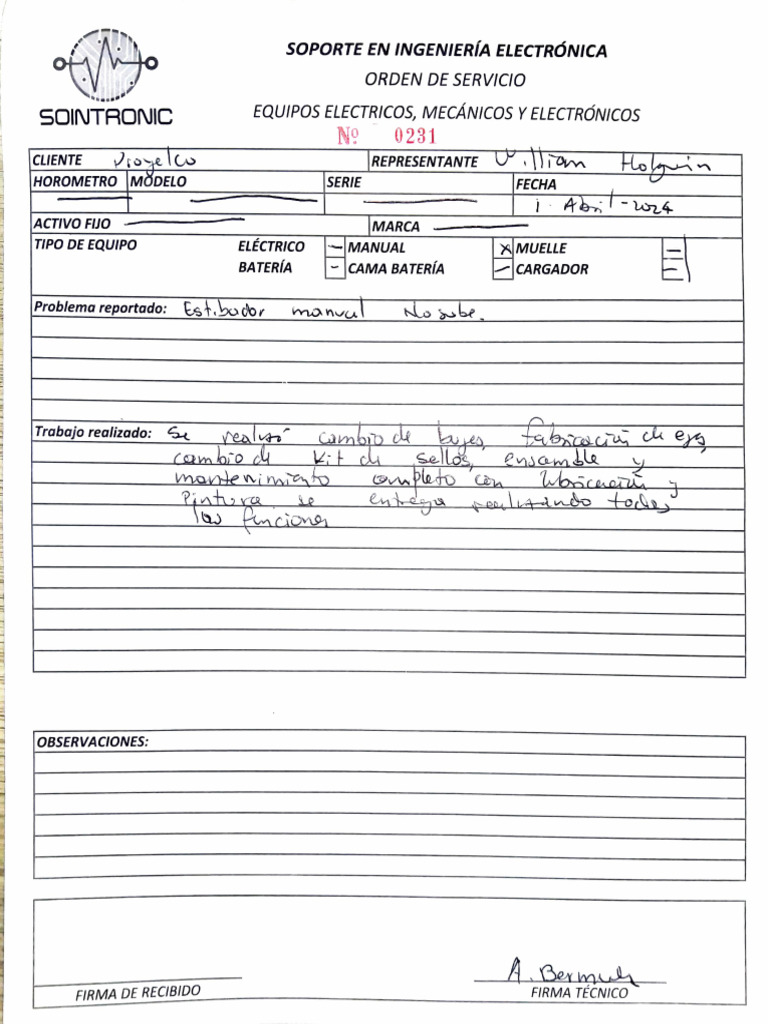 SOINTRONIC
SOPORTE EN INGENIERÍA ELECTRÓNICA
ORDEN DE SERVICIO
EQUIPOS ELECTRICOS, MECÁNICOS Y ELECTRÓNICOS
Nº 0231
CLIENTE Proyelco REPRESENTANTE William Holguin
HOROMETRO MODELO SERIE FECHA
1. Abril-2024
ACTIVO FIJO MARCA
TIPO DE EQUIPO ELÉCTRICO - MANUAL X MUELLE -
BATERÍA - CAMA BATERÍA - CARGADOR -
Problema reportado: Estibador manual No sube.
Trabajo realizado: Se realizó cambio de bujes, fabricación de eje,
cambio de kit de sellos, ensamble y
mantenimiento completo con lubricación y
Pintura. se entrega realizando todas
las funciones
OBSERVACIONES:
A. Bermudez
FIRMA DE RECIBIDO FIRMA TÉCNICO